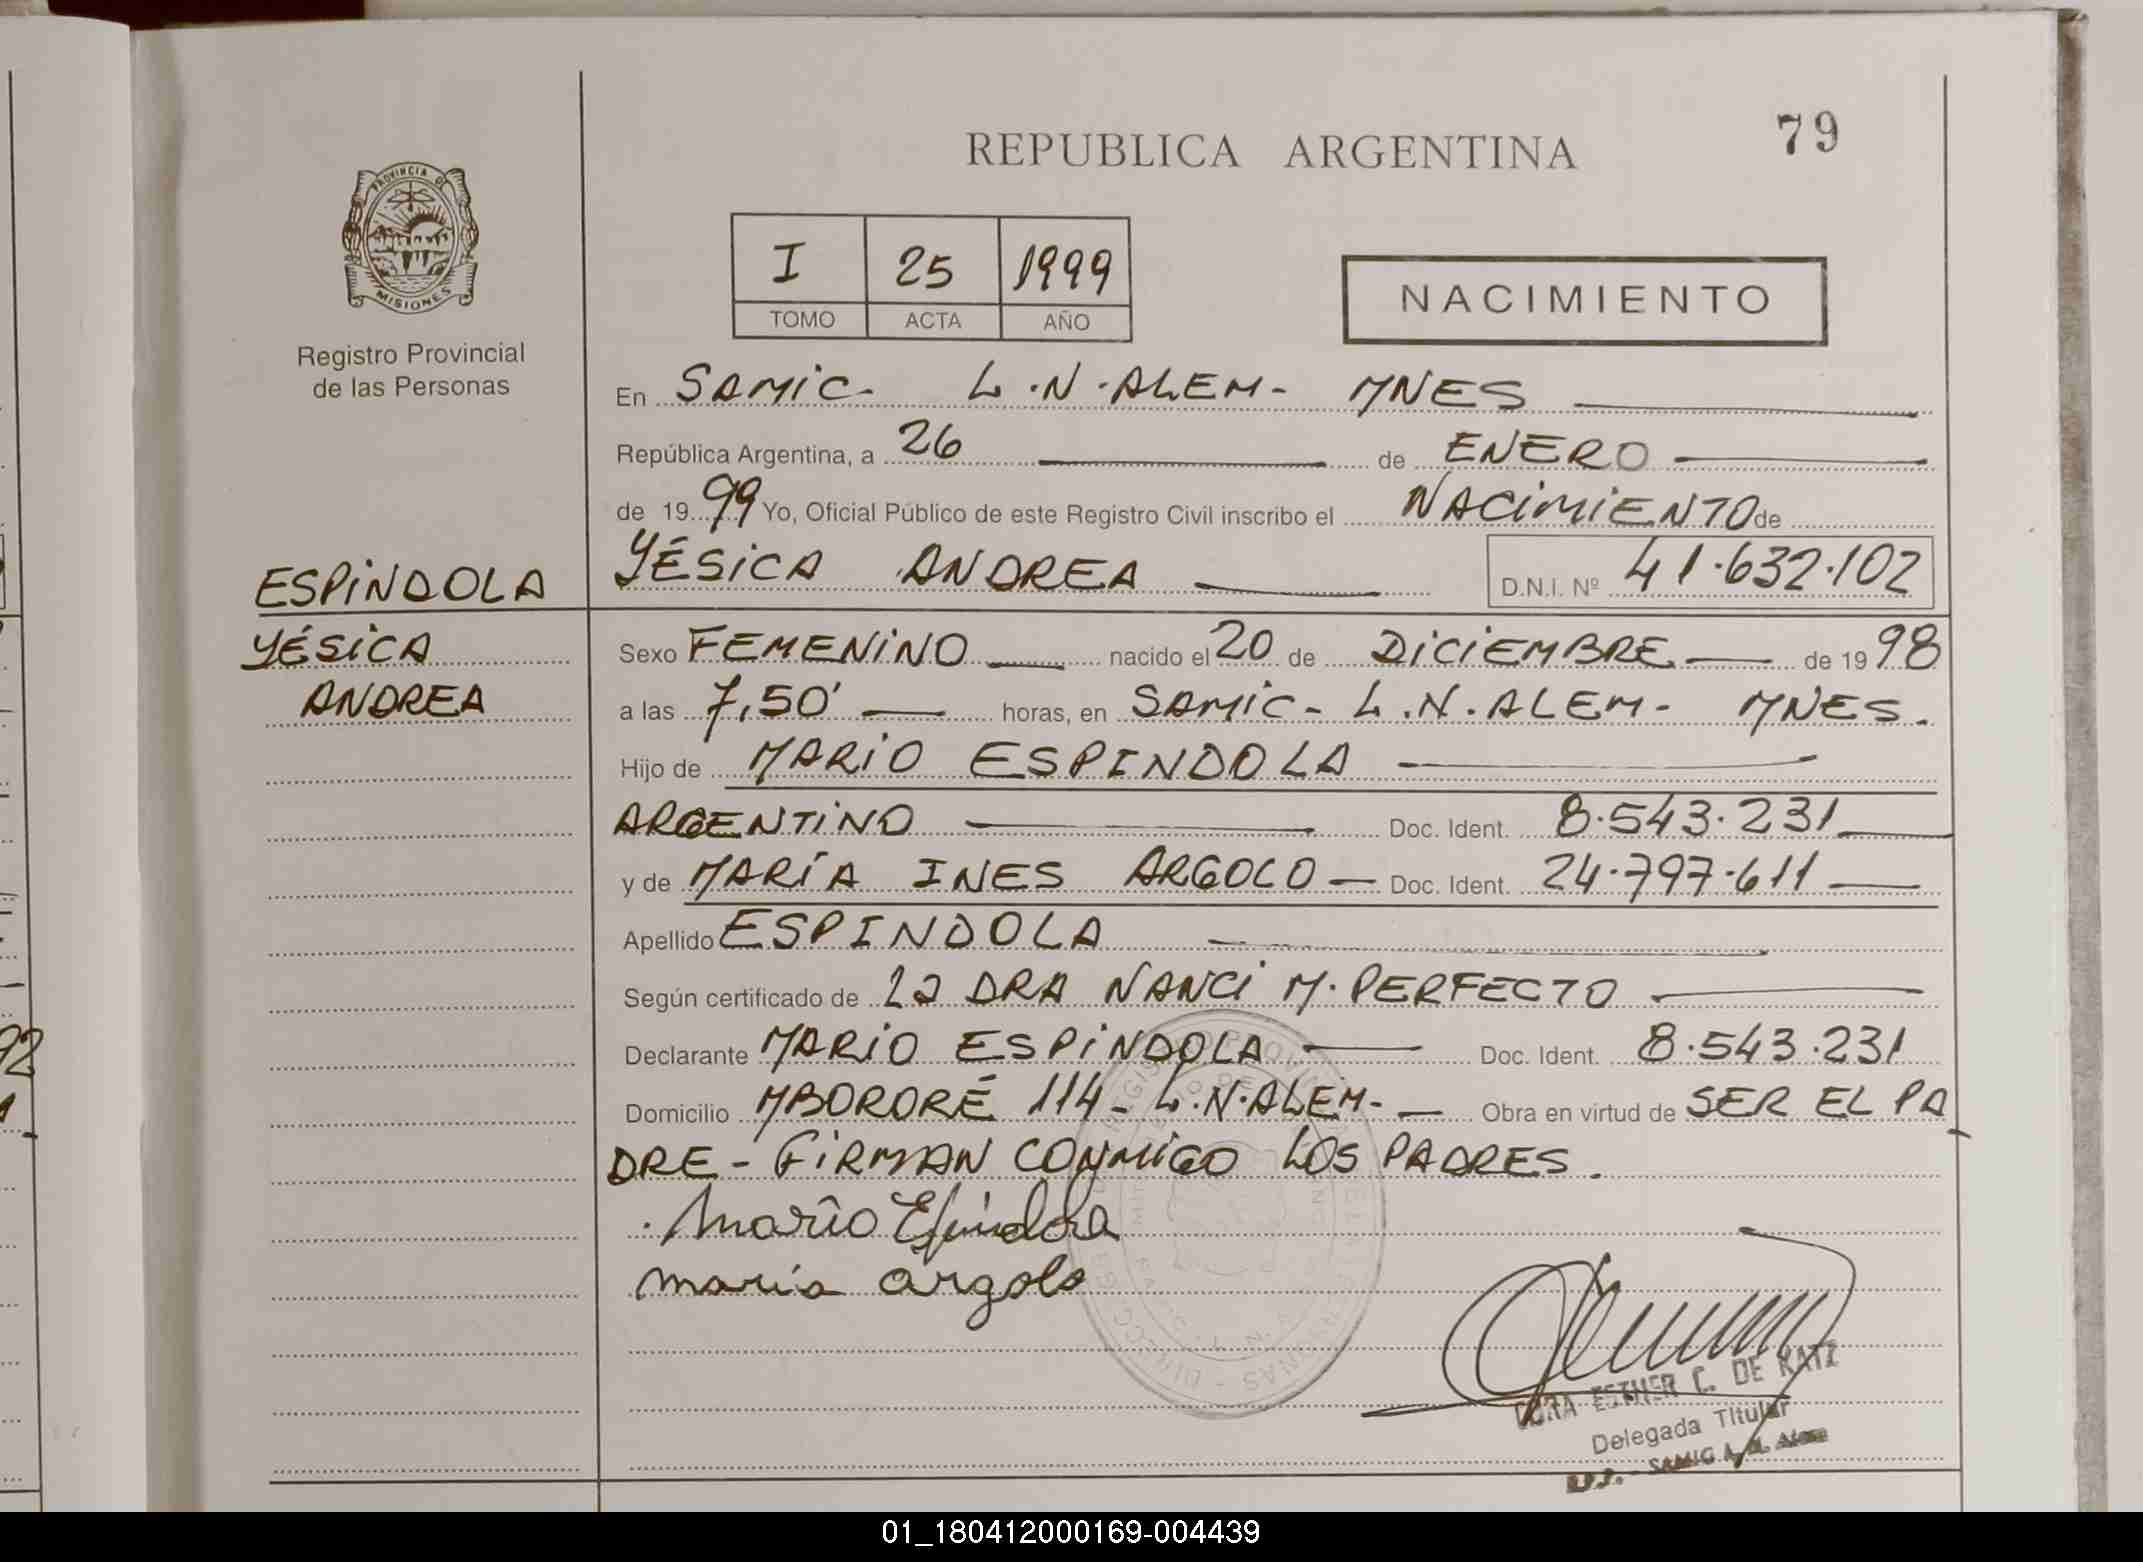 79
REPUBLICA ARGENTINA
PROVINCIA DE
MISIONES
Registro Provincial
de las Personas
I 25 1999
TOMO ACTA AÑO
NACIMIENTO
En SAMIC- L.N.ALEM- MNES
República Argentina, a 26 de ENERO
de 1999 Yo, Oficial Público de este Registro Civil inscribo el NACIMIENTO de
YÉSICA ANDREA D.N.I. Nº 41.632.102
ESPINDOLA
YÉSICA
ANDREA
Sexo FEMENINO nacido el 20 de DICIEMBRE de 1998
a las 7,50' horas, en SAMIC- L.N.ALEM- MNES.
Hijo de MARIO ESPINDOLA
ARGENTINO Doc. Ident. 8.543.231
y de MARÍA INES ARGOLO Doc. Ident. 24.797.611
Apellido ESPINDOLA
Según certificado de La DRA NANCI M. PERFECTO
Declarante MARIO ESPINDOLA Doc. Ident. 8.543.231
Domicilio MBORORÉ 114- L.N.ALEM- Obra en virtud de SER EL PA
DRE- FIRMAN CONMIGO LOS PADRES.
Mario Espindola
maria argolo
ESTHER C. DE KATZ
Delegada Titular
01_180412000169-004439